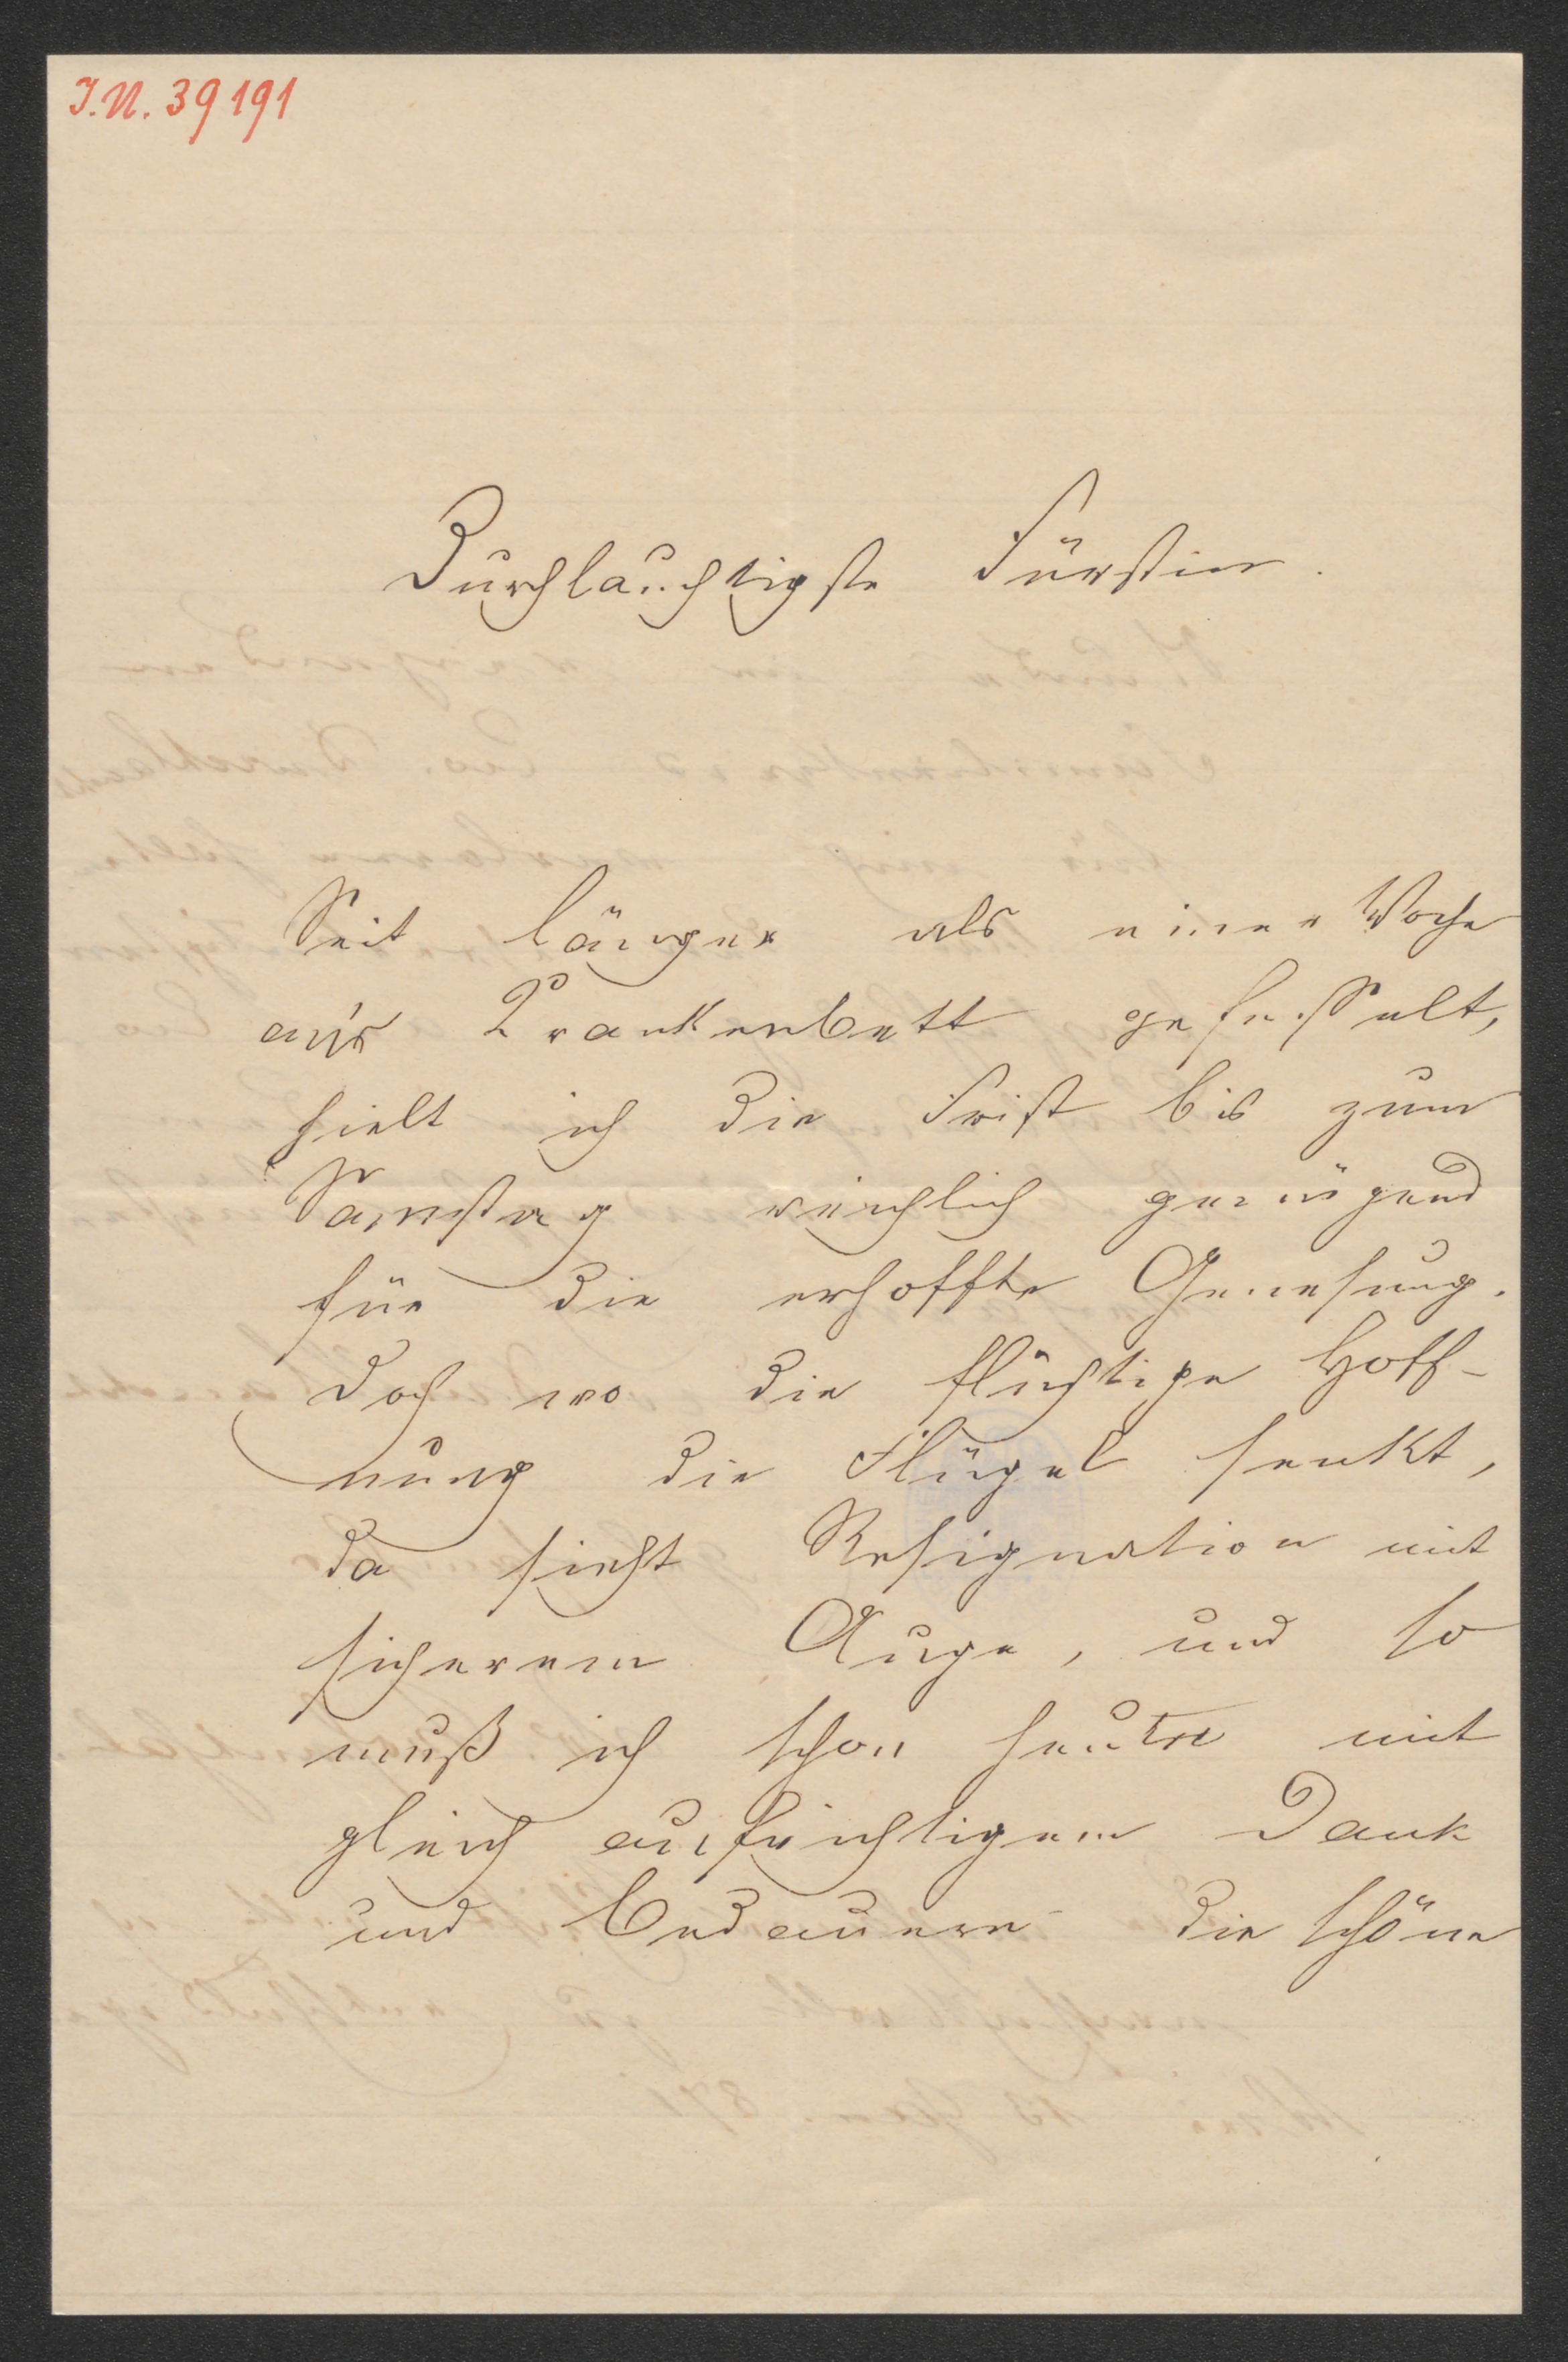 I.N. 39191
Durchlauchtigste Fürstin.
Seit länger als einer Woche
an's Krankenbett gefesselt,
hielt ich die Frist bis zum
Samstag reichlich genügend
für die erhoffte Genesung.
Doch wo die flüchtige Hoff-
nung die Flügel senkt,
da sieht Resignation mit
sicherem Auge, und so
muß ich schon heute mit
gleich aufrichtigem Dank
und Bedauern die schöne